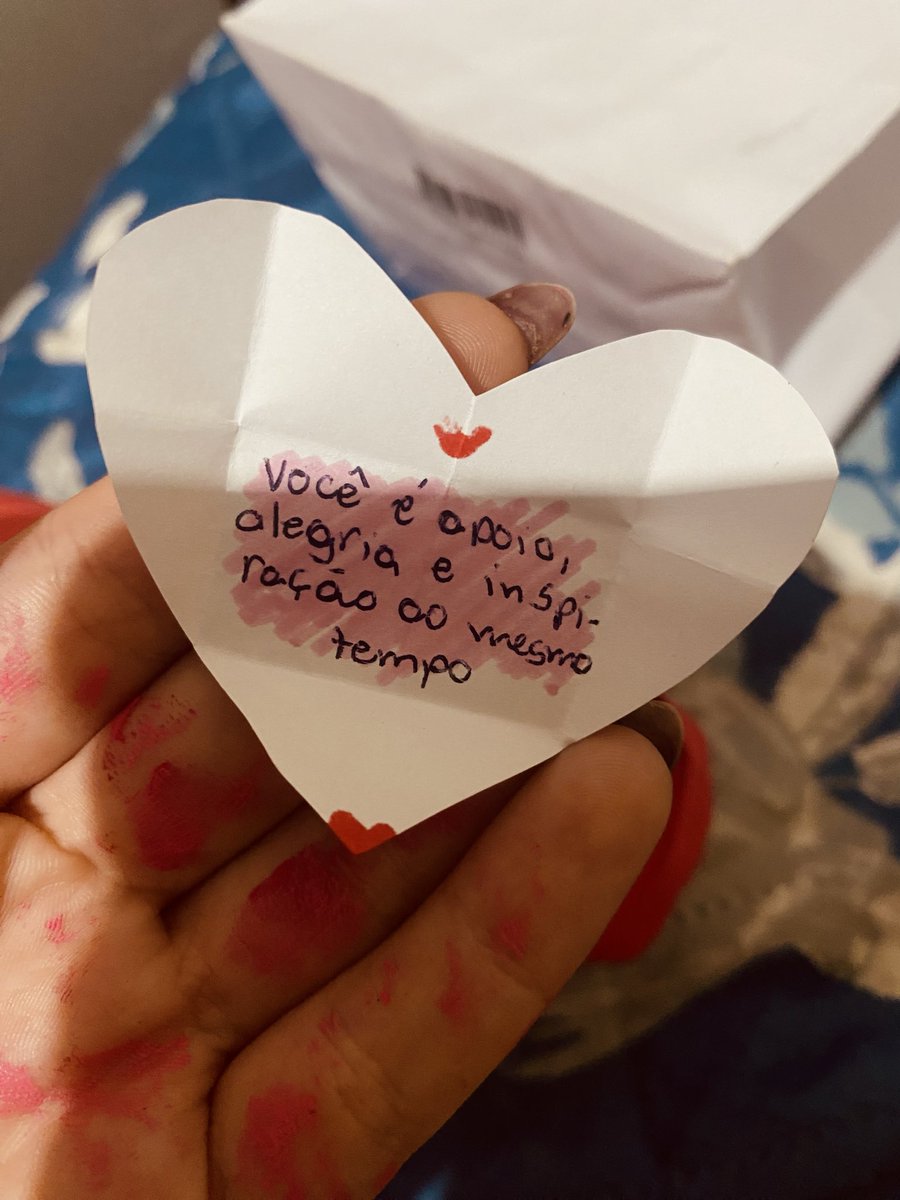 Você é apoio,
alegria e inspi-
ração ao mesmo
tempo